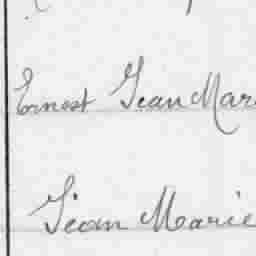 Ernest Jean Mar
Jean Marie